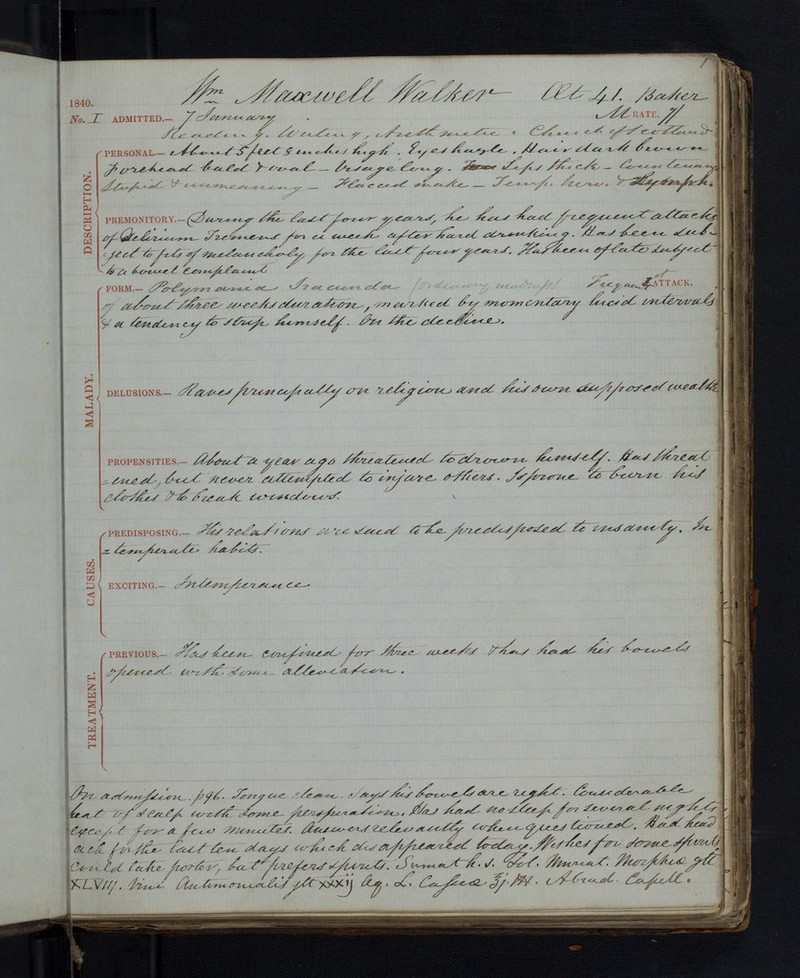 1
Wm Maxwell Walker Æt 41. Baker
1840.
No. I ADMITTED.— 7 January M RATE.
Reading, Writing, Arithmetic. Church of Scotland
DESCRIPTION.
PERSONAL.— About 5 feet 8 inches high. Eyes hazle. Hair dark brown
Forehead bald & oval – Visage long. Lips thick – Countenance
stupid & unmeaning – Flaccid make – Temp. nerv. & Lymph.
PREMONITORY.— During the last four years, he has had frequent attacks
of Delirium Tremens for a week after hard drinking. Has been sub-
=ject to fits of melancholy for the last four years. Has been of late subject
to a bowel complaint
MALADY.
FORM.— Polymania Iracunda (ordinary madness) 1st ATTACK.
of about three weeks duration, marked by momentary lucid intervals
& a tendency to strip himself. On the decline.
DELUSIONS.— Raves principally on religion and his own supposed wealth
PROPENSITIES.— About a year ago threatened to drown himself. Has threat
=ened, but never attempted to injure others. Is prone to burn his
clothes & to break windows.
CAUSES.
PREDISPOSING.— His relations are said to be predisposed to insanity. In
=temperate habits.
EXCITING.— Intemperance
TREATMENT.
PREVIOUS.— Has been confined for three weeks & has had his bowels
opened with some alleviation.
On admission. p 96. Tongue clean. Says his bowels are right. Considerable
heat of scalp with some perspiration. Has had no sleep for several nights
except for a few minutes. Answers relevantly when questioned. Had head
ach for the last ten days which disappeared today. Wishes for some spirits
Could take porter, but prefers spirits. Sumat h.s. Sol. Muriat. Morphiæ gtt
XLVIIJ. Vini Antimonialis gtt xxxij Aq. ʒj. Abrad. Capill.